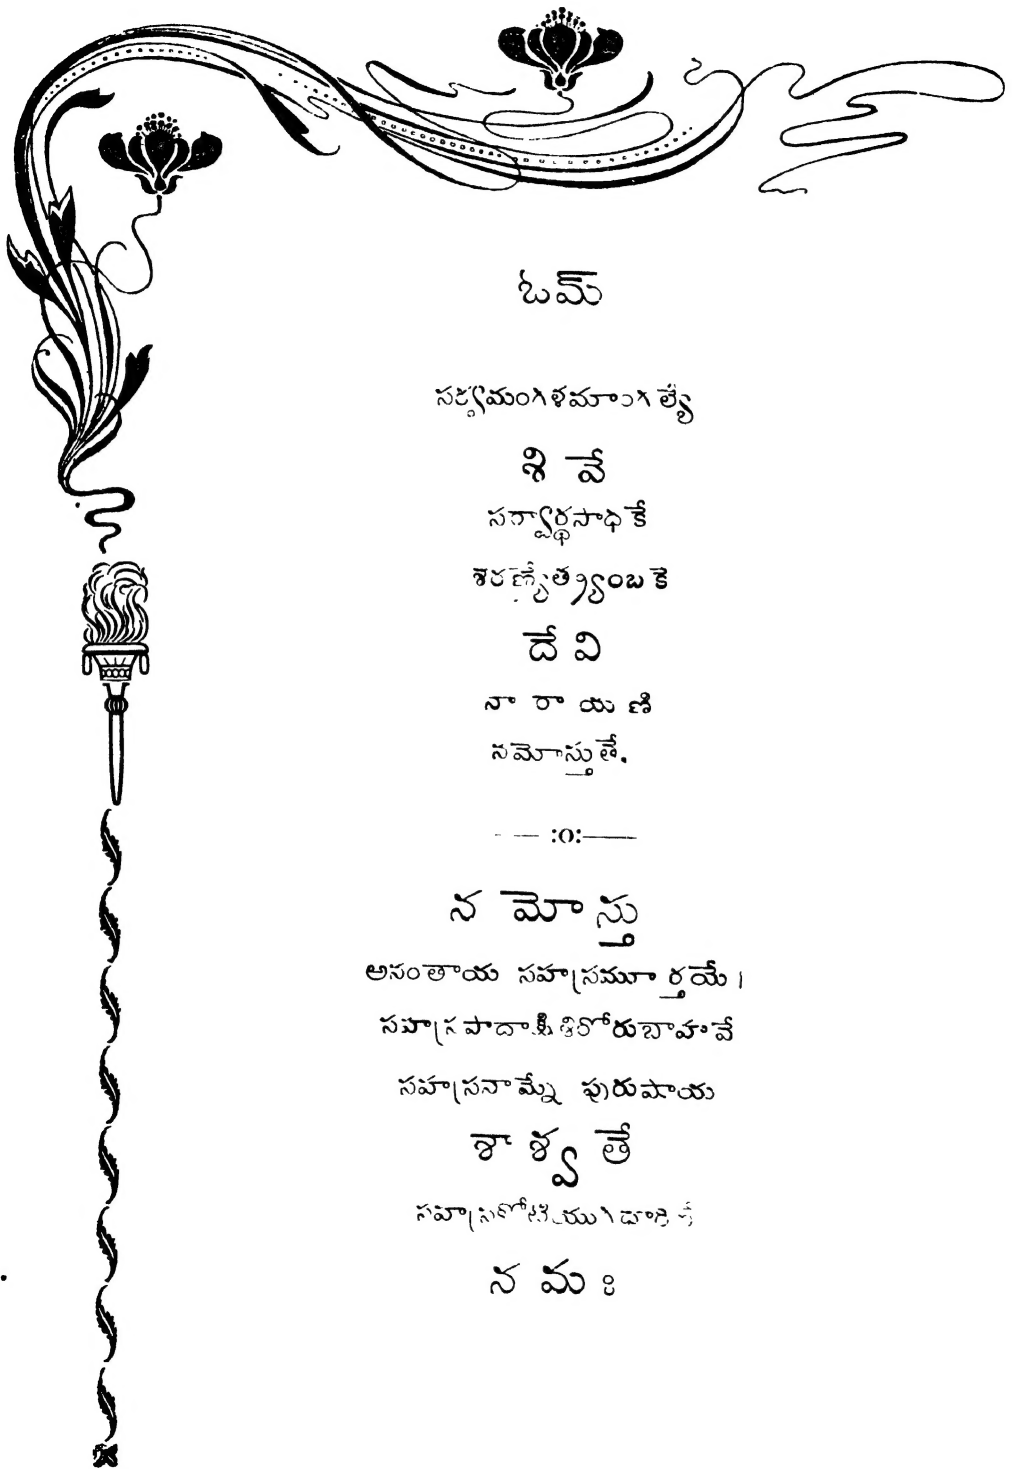 ఓమ్
సర్వమంగళమాంగల్యే
శి వే
సర్వార్థసాధకే
శరణ్యేత్ర్యంబకె
దే వి
నా రా య ణి
నమోస్తుతే.
— — :o:——
న మో స్తు
అనంతాయ సహస్రమూర్తయే।
సహస్రపాదాక్షిశిరోరుబాహవే
సహస్రనామ్నే పురుషాయ
శా శ్వ తే
సహస్రకోటియుగధారిణే
న మ ః